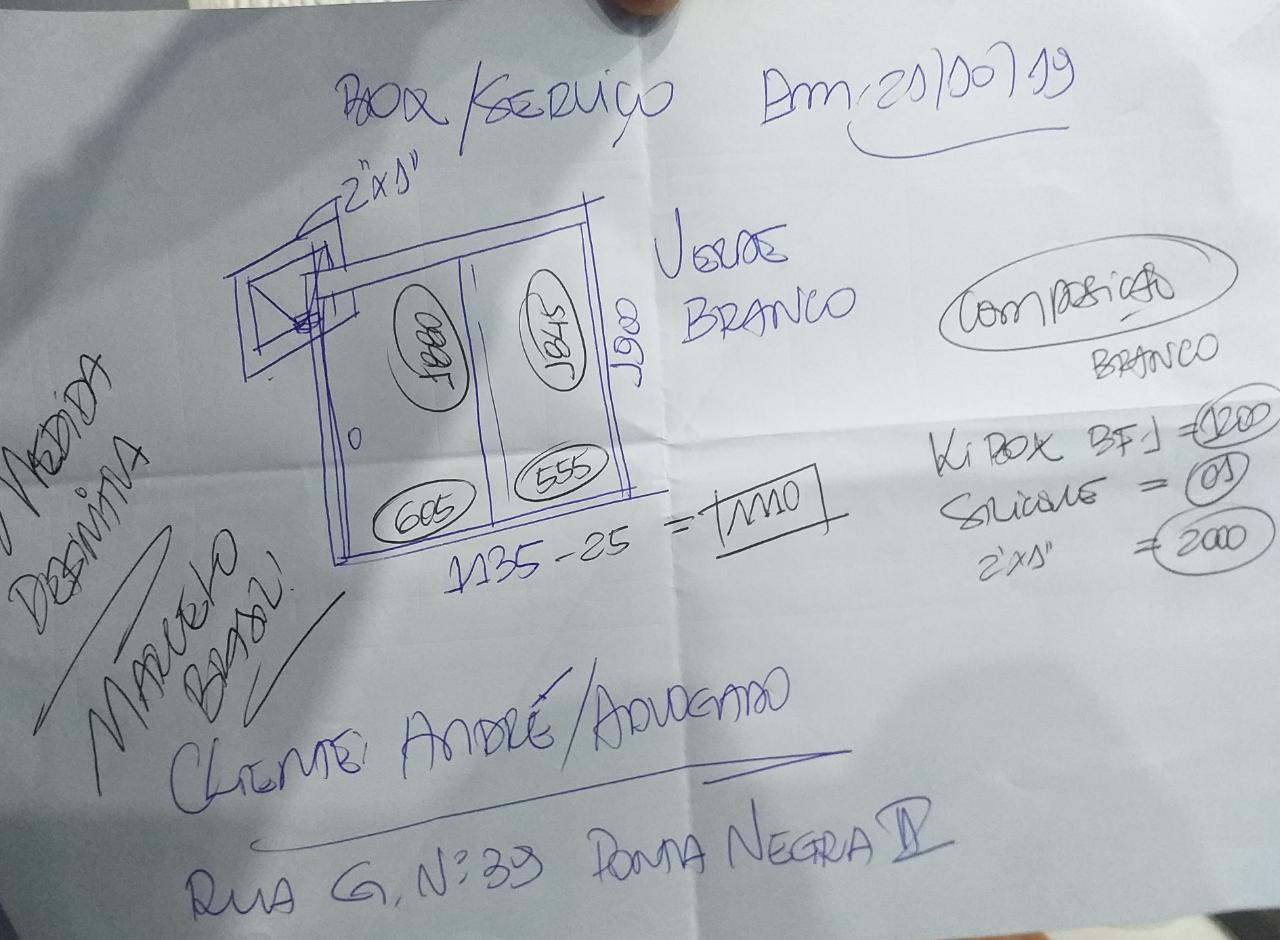 BOX/SERVIÇO Em: 21/10/19
2"x1"
VERDE
BRANCO
1880
1845
1900
605
555
1135-25 = 1110
COMPOSIÇÃO
BRANCO
Ki BOX BF1 = 1200
SILICONE = 01
2"x1" = 2000
MEDIDA
DEFINITIVA
MARCELO
BRASIL!
CLIENTE: ANDRÉ/ADVOGADO
RUA G, Nº 39 PONTA NEGRA II